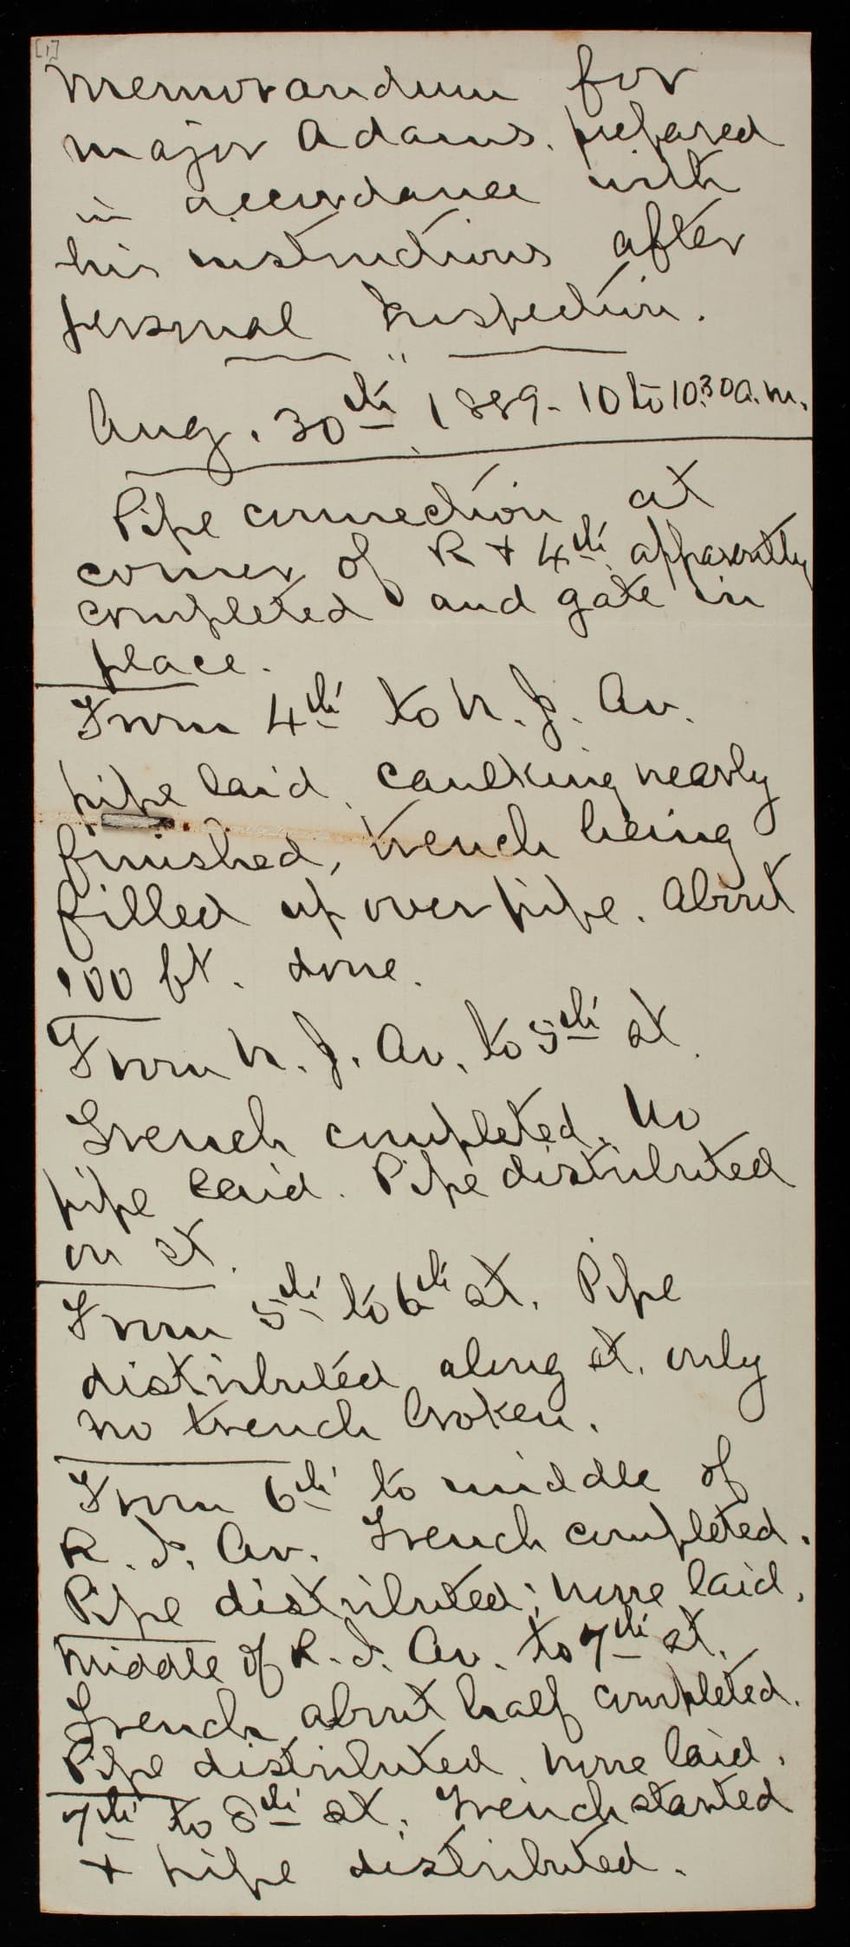 [1]
Memorandum for
Major Adams. prepared
in accordance with
his instructions after
personal Inspection.
Aug. 30th 1889- 10 to 10.30 a.m.
Pipe connection at
corner of R + 4th apparently
completed and gate in
place.
From 4th to N. J. Av.
pipe laid, caulking nearly
finished, trench being
filled up over pipe. About
100 ft. done.
From N. J. Av. to 5th st.
Trench completed. No
pipe laid. Pipe distributed
on st.
From 5th to 6th st. Pipe
distributed along st. only
no trench broken.
From 6th to middle of
R. I. Av. Trench completed.
Pipe distributed; none laid.
Middle of R. I. Av. to 7th st.
Trench about half completed.
Pipe distributed, none laid.
7th to 8th st. Trench started
+ pipe distributed.